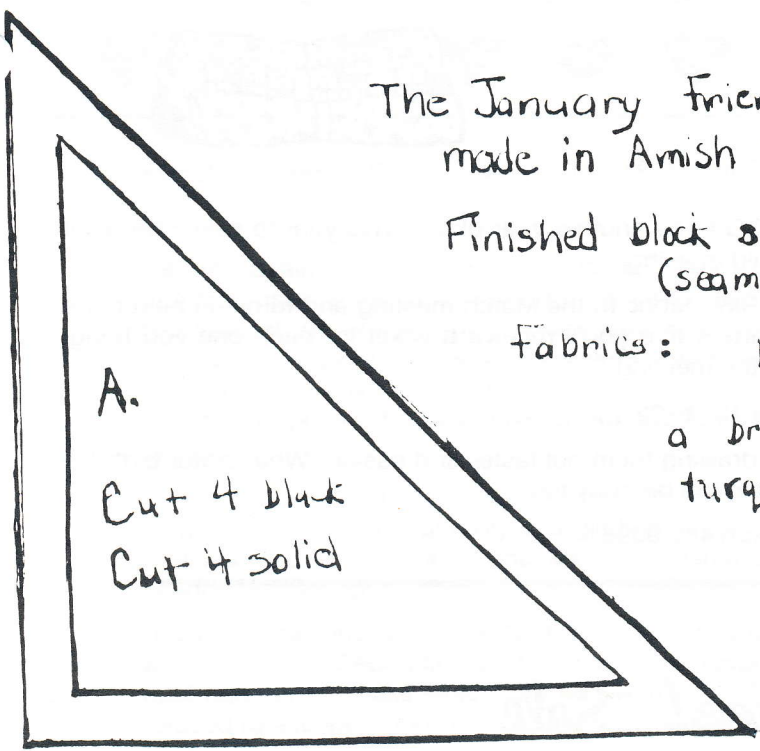 The January Frien
made in Amish
Finished block s
(seam
Fabrics:
a br
turq
A.
Cut 4 black
Cut 4 solid